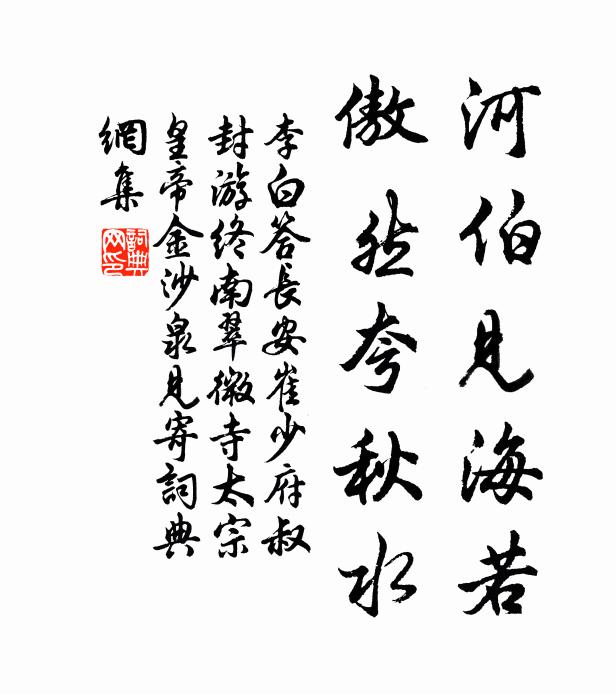 河伯見海若
傲然夸秋水
李白答長安崔少府叔
封游終南翠微寺太宗
皇帝金沙泉見寄詞典
網集
詞典
網印